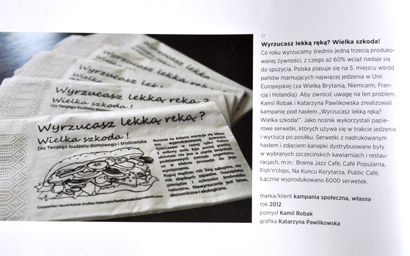 Wyrzucasz lekką ręką?
Wielka szkoda!
Dla Twojego budżetu domowego i środowiska
Wyrzucasz lekką ręką? Wielka szkoda!
Co roku wyrzucamy średnio jedną trzecią produko-
wanej żywności, z czego aż 60% wciąż nadaje się
do spożycia. Polska plasuje się na 5. miejscu wśród
państw marnujących najwięcej jedzenia w Unii
Europejskiej (za Wielką Brytanią, Niemcami, Fran-
cją i Holandią). Aby zwrócić uwagę na ten problem,
Kamil Robak i Katarzyna Pawlikowska zrealizowali
kampanię pod hasłem „Wyrzucasz lekką ręką?
Wielka szkoda!". Jako nośnik wykorzystali papie-
rowe serwetki, których używa się w trakcie jedzenia
i wyrzuca po posiłku. Serwetki z nadrukowanym
hasłem i zdjęciem kanapki dystrybuowane były
w wybranych szczecińskich kawiarniach i restau-
racjach, m.in.: Brama Jazz Café, Café Popularna,
Fish'n'chips, Na Kuńcu Korytarza, Public Café.
Łącznie wyprodukowano 6000 serwetek.
marka/klient kampania społeczna, własna
rok 2012
pomysł Kamil Robak
grafika Katarzyna Pawlikowska